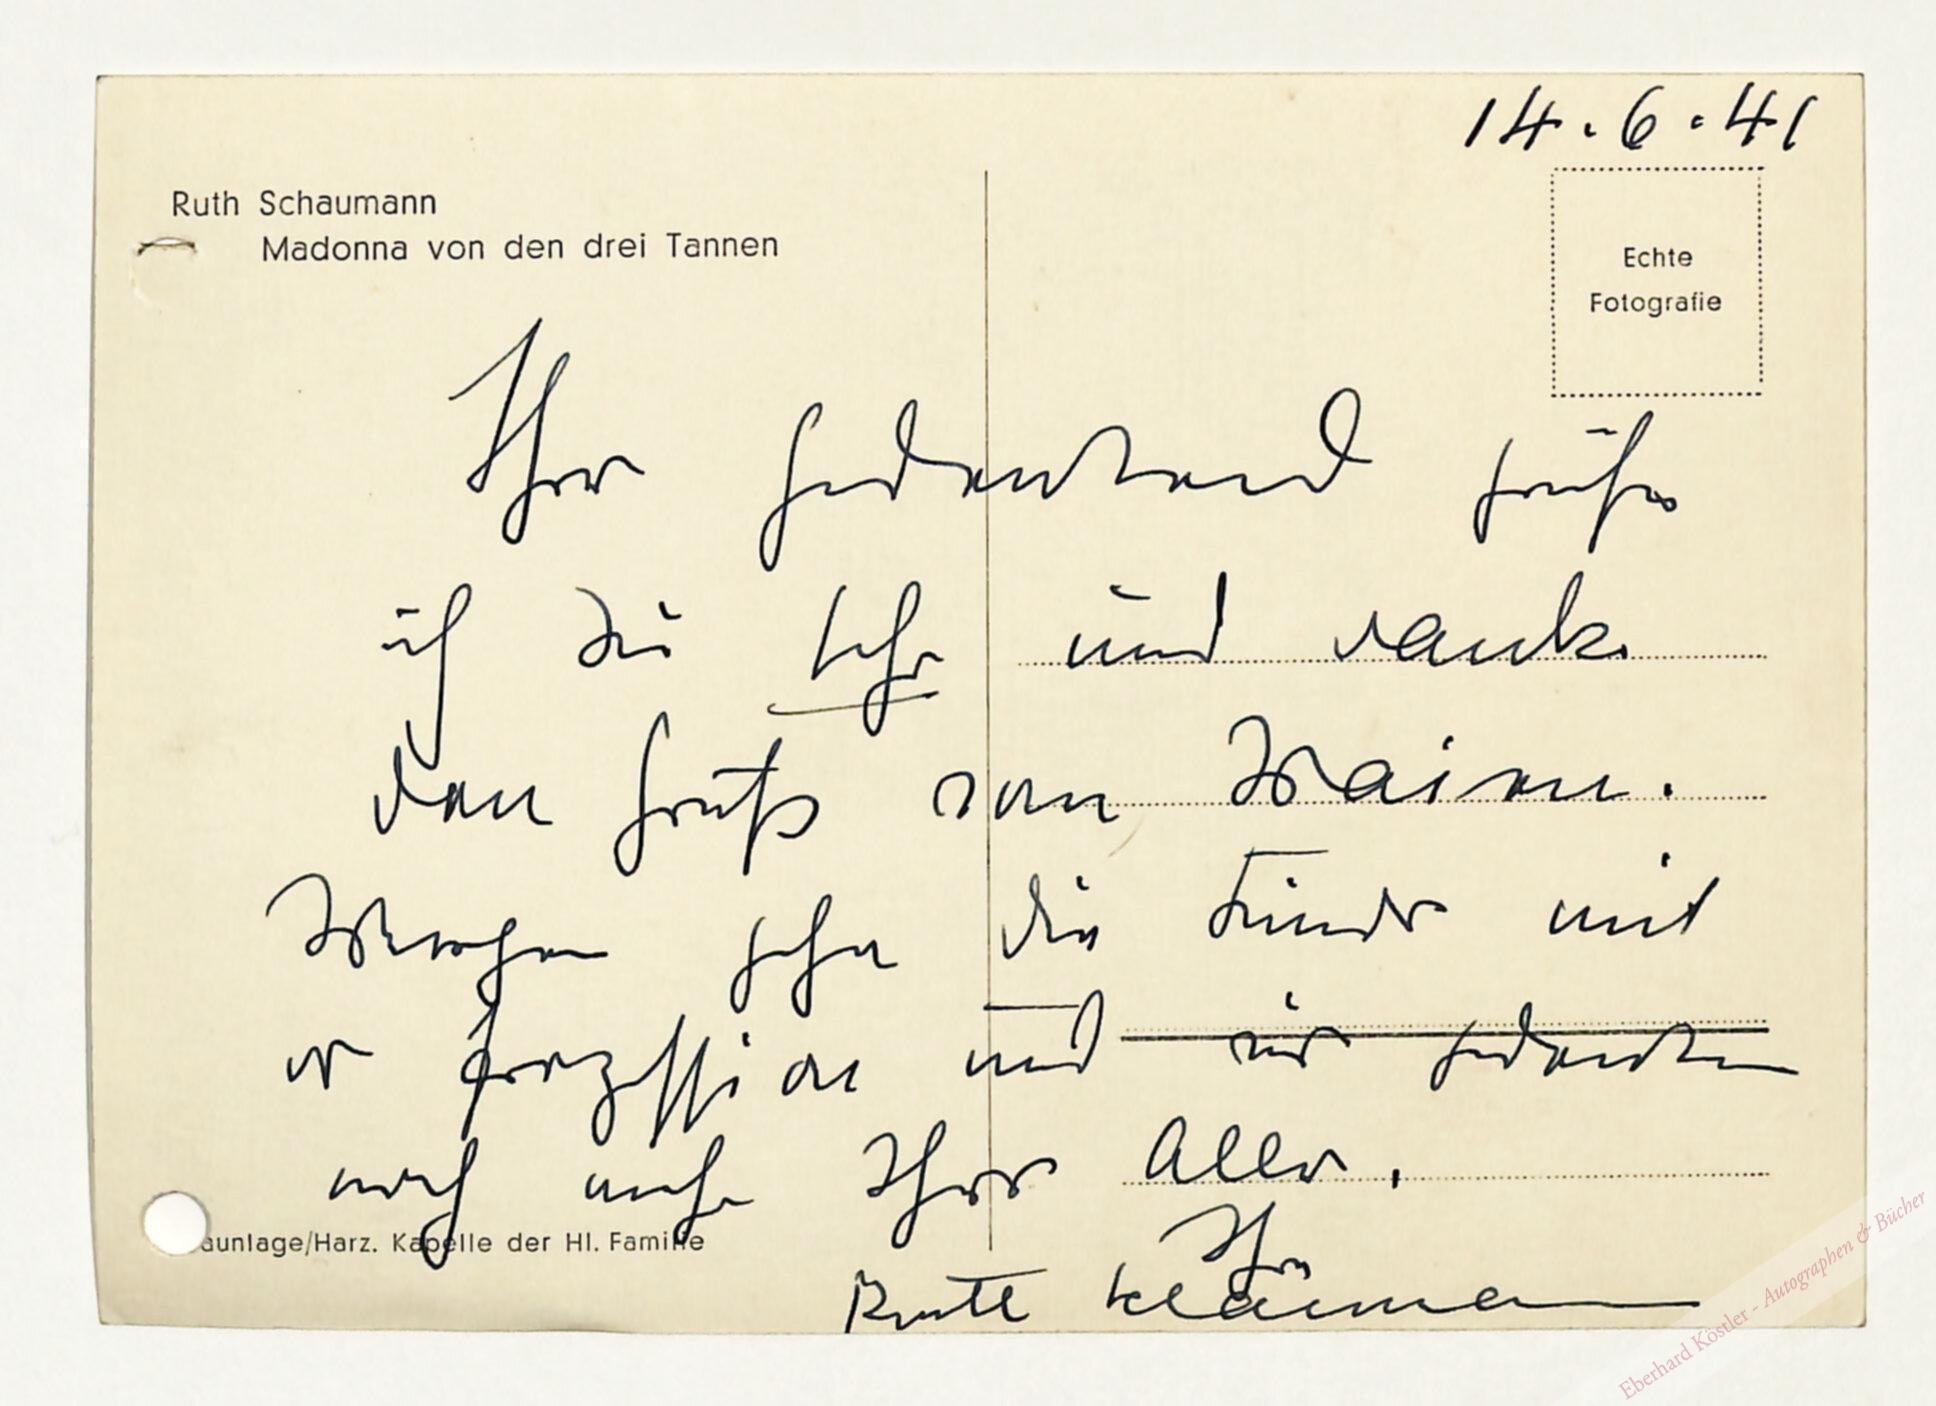 14.6.41
Ruth Schaumann
Madonna von den drei Tannen
Echte
Fotografie
Ihrer gedenkend grüße
ich Sie sehr und danke
den Gruß von
Morgen gehn die Kinder mit
Prozession und wir gedenken
noch mehr Ihrer Aller.
Ihre
Ruth Schaumann
aunlage/Harz. Kapelle der Hl. Familie
Eberhard Köstler - Autographen & Bücher